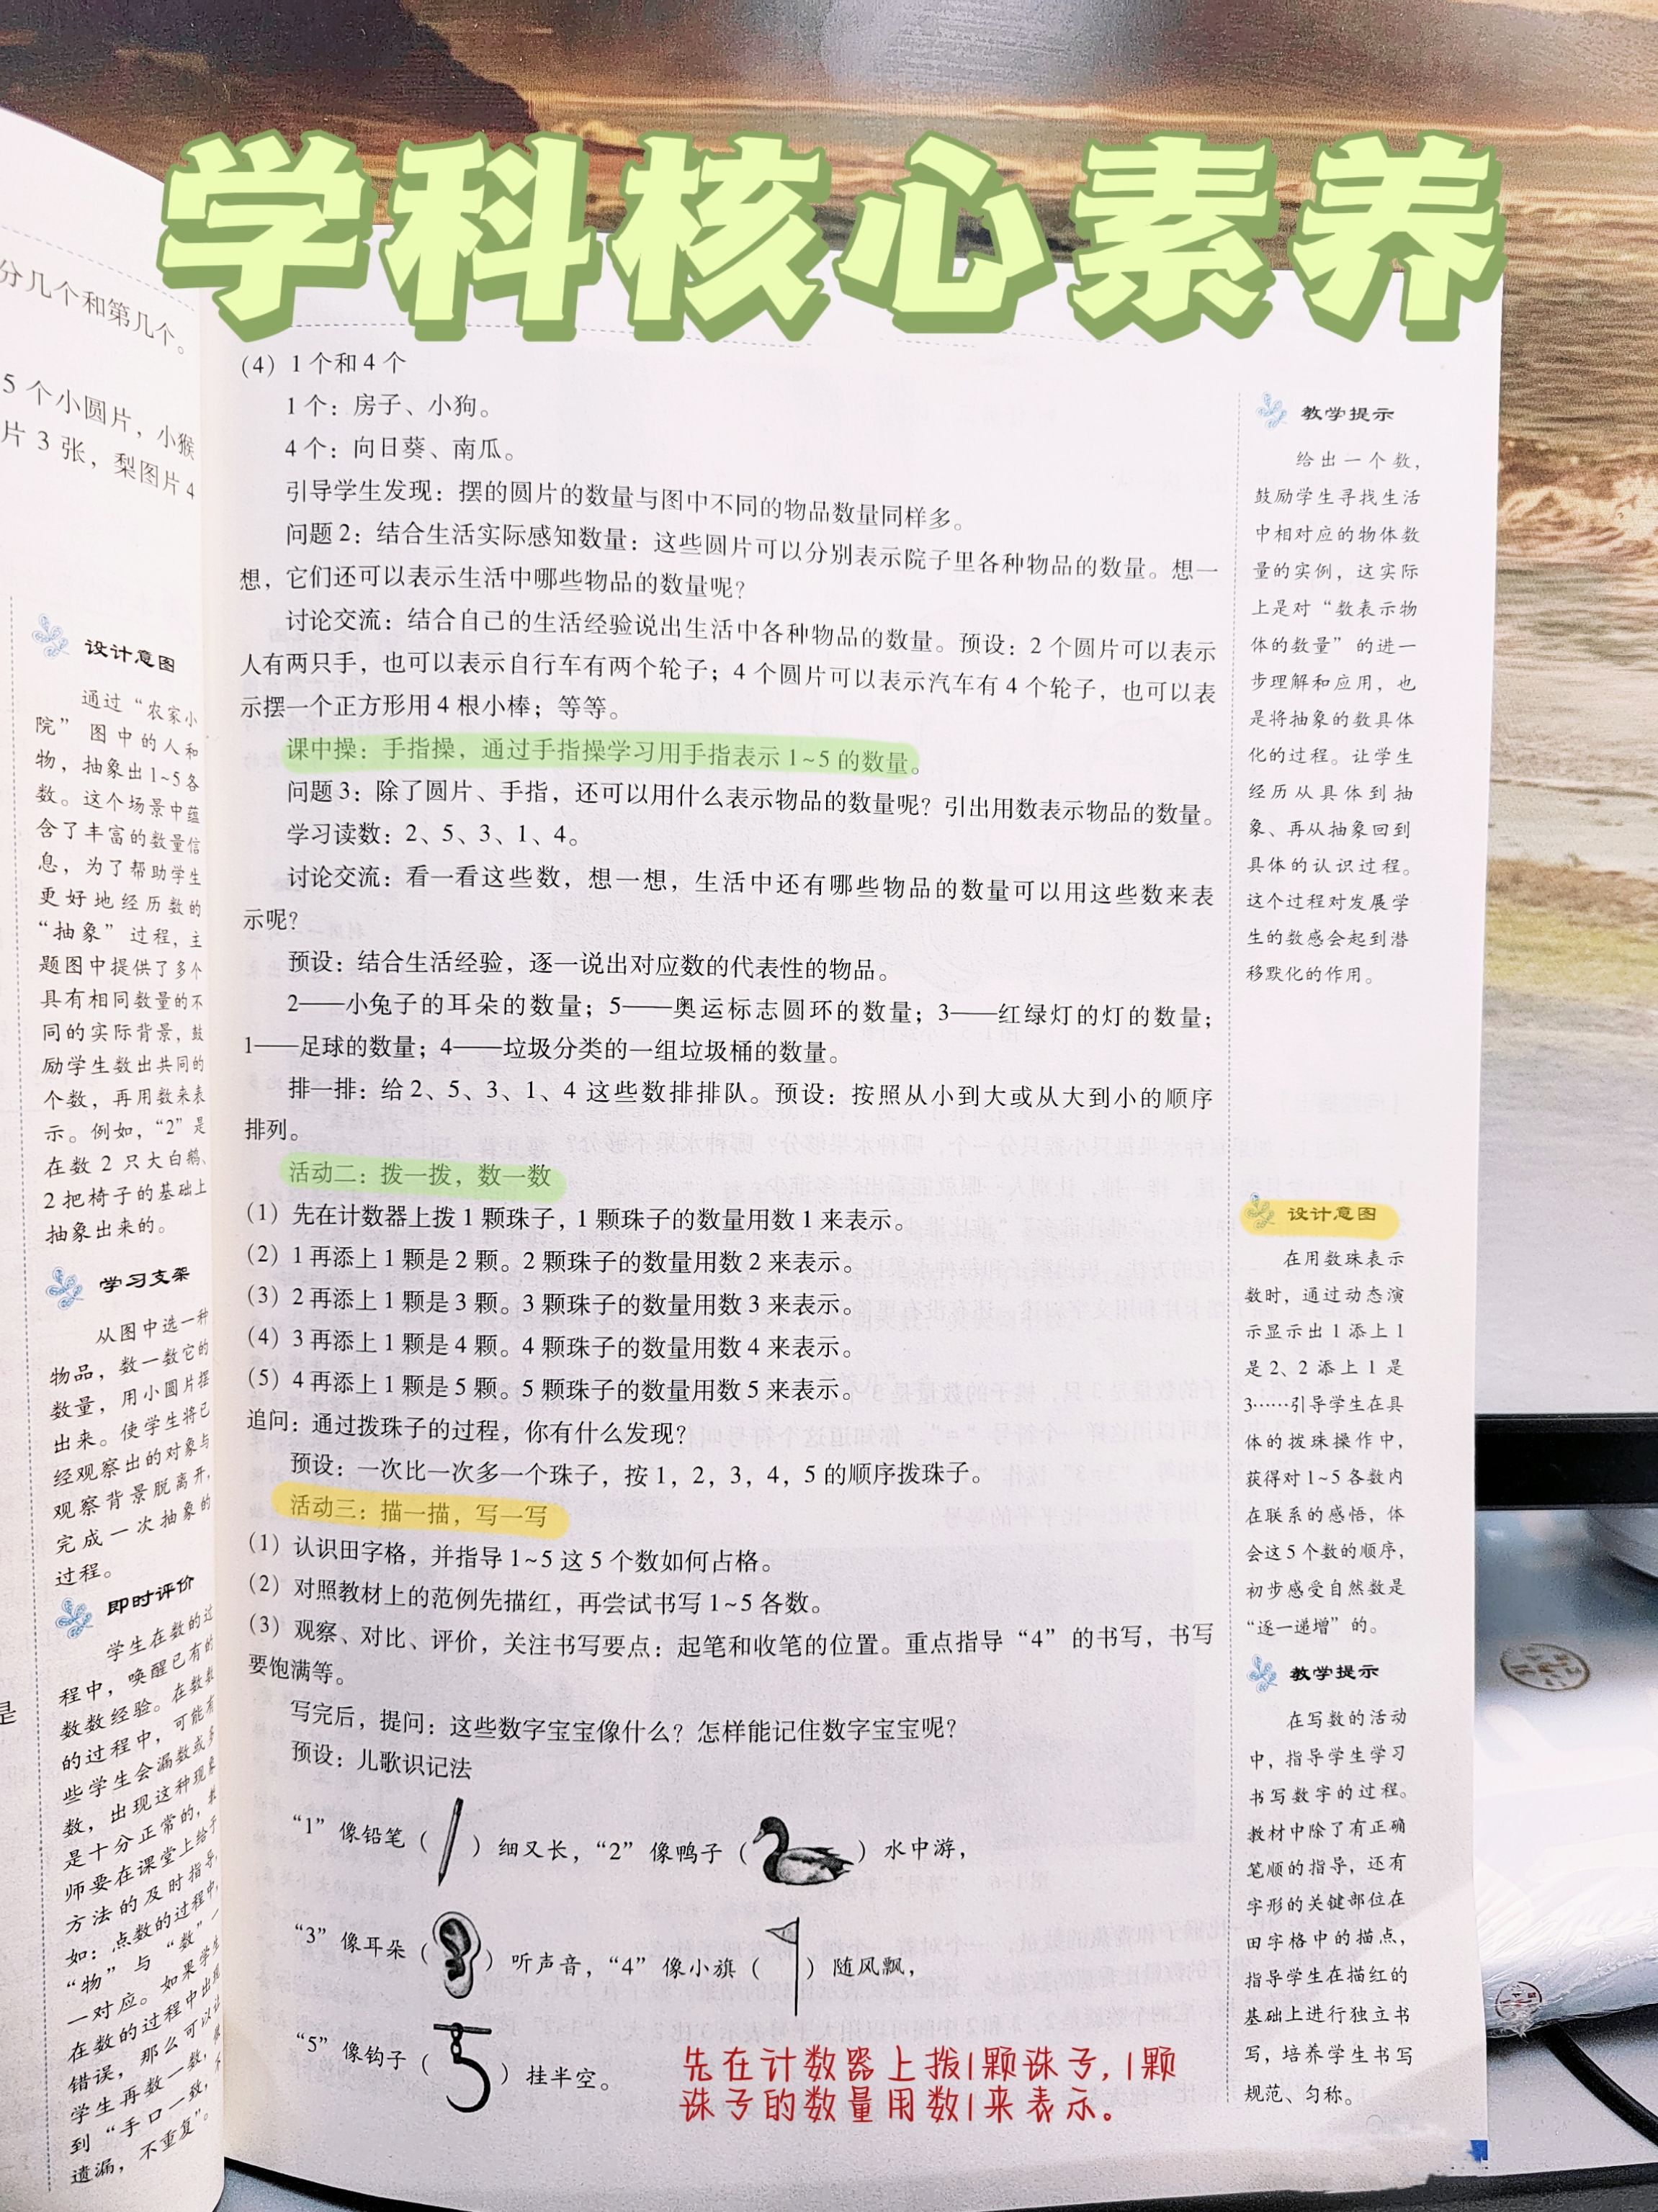 学科核心素养
分几个和第几个。
5 个小圆片，小猴
片 3 张，梨图片 4
设计意图
通过“农家小
院”图中的人和
物，抽象出1~5各
数。这个场景中蕴
含了丰富的数量信
息，为了帮助学生
更好地经历数的
“抽象”过程，主
题图中提供了多个
具有相同数量的不
同的实际背景，鼓
励学生数出共同的
个数，再用数来表
示。例如，“2”是
在数 2 只大白鹅、
2 把椅子的基础上
抽象出来的。
学习支架
从图中选一种
物品，数一数它的
数量，用小圆片摆
出来。使学生将已
经观察出的对象与
观察背景脱离开，
完成一次抽象的
过程。
即时评价
学生在数的过
程中，唤醒已有的
数数经验。在数数
的过程中，可能有
些学生会漏数或多
数，出现这种现象
是十分正常的，教
师要在课堂上给予
方法的及时指导，
如：点数的过程中，
“物”与“数”一
一对应。如果学生
在数的过程中出现
错误，那么可以让
学生再数一数，
到“手口一致，不
遗漏，不重复”。
是
（4）1 个和 4 个
1 个：房子、小狗。
4 个：向日葵、南瓜。
引导学生发现：摆的圆片的数量与图中不同的物品数量同样多。
问题 2：结合生活实际感知数量：这些圆片可以分别表示院子里各种物品的数量。想一
想，它们还可以表示生活中哪些物品的数量呢？
讨论交流：结合自己的生活经验说出生活中各种物品的数量。预设：2 个圆片可以表示
人有两只手，也可以表示自行车有两个轮子；4 个圆片可以表示汽车有 4 个轮子，也可以表
示摆一个正方形用 4 根小棒；等等。
课中操：手指操，通过手指操学习用手指表示 1~5 的数量。
问题 3：除了圆片、手指，还可以用什么表示物品的数量呢？引出用数表示物品的数量。
学习读数：2、5、3、1、4。
讨论交流：看一看这些数，想一想，生活中还有哪些物品的数量可以用这些数来表
示呢？
预设：结合生活经验，逐一说出对应数的代表性的物品。
2——小兔子的耳朵的数量；5——奥运标志圆环的数量；3——红绿灯的灯的数量；
1——足球的数量；4——垃圾分类的一组垃圾桶的数量。
排一排：给 2、5、3、1、4 这些数排排队。预设：按照从小到大或从大到小的顺序
排列。
活动二：拨一拨，数一数
（1）先在计数器上拨 1 颗珠子，1 颗珠子的数量用数 1 来表示。
（2）1 再添上 1 颗是 2 颗。2 颗珠子的数量用数 2 来表示。
（3）2 再添上 1 颗是 3 颗。3 颗珠子的数量用数 3 来表示。
（4）3 再添上 1 颗是 4 颗。4 颗珠子的数量用数 4 来表示。
（5）4 再添上 1 颗是 5 颗。5 颗珠子的数量用数 5 来表示。
追问：通过拨珠子的过程，你有什么发现？
预设：一次比一次多一个珠子，按 1，2，3，4，5 的顺序拨珠子。
活动三：描一描，写一写
（1）认识田字格，并指导 1~5 这 5 个数如何占格。
（2）对照教材上的范例先描红，再尝试书写 1~5 各数。
（3）观察、对比、评价，关注书写要点：起笔和收笔的位置。重点指导“4”的书写，书写
要饱满等。
写完后，提问：这些数字宝宝像什么？怎样能记住数字宝宝呢？
预设：儿歌识记法
“1”像铅笔（ ）细又长，“2”像鸭子（ ）水中游，
“3”像耳朵（ ）听声音，“4”像小旗（ ）随风飘，
“5”像钩子（ ）挂半空。
先在计数器上拨1颗珠子，1颗
珠子的数量用数1来表示。
教学提示
给出一个数，
鼓励学生寻找生活
中相对应的物体数
量的实例，这实际
上是对“数表示物
体的数量”的进一
步理解和应用，也
是将抽象的数具体
化的过程。让学生
经历从具体到抽
象、再从抽象回到
具体的认识过程。
这个过程对发展学
生的数感会起到潜
移默化的作用。
设计意图
在用数珠表示
数时，通过动态演
示显示出 1 添上 1
是 2、2 添上 1 是
3……引导学生在具
体的拨珠操作中，
获得对 1~5 各数内
在联系的感悟，体
会这 5 个数的顺序，
初步感受自然数是
“逐一递增”的。
教学提示
在写数的活动
中，指导学生学习
书写数字的过程。
教材中除了有正确
笔顺的指导，还有
字形的关键部位在
田字格中的描点，
指导学生在描红的
基础上进行独立书
写，培养学生书写
规范、匀称。